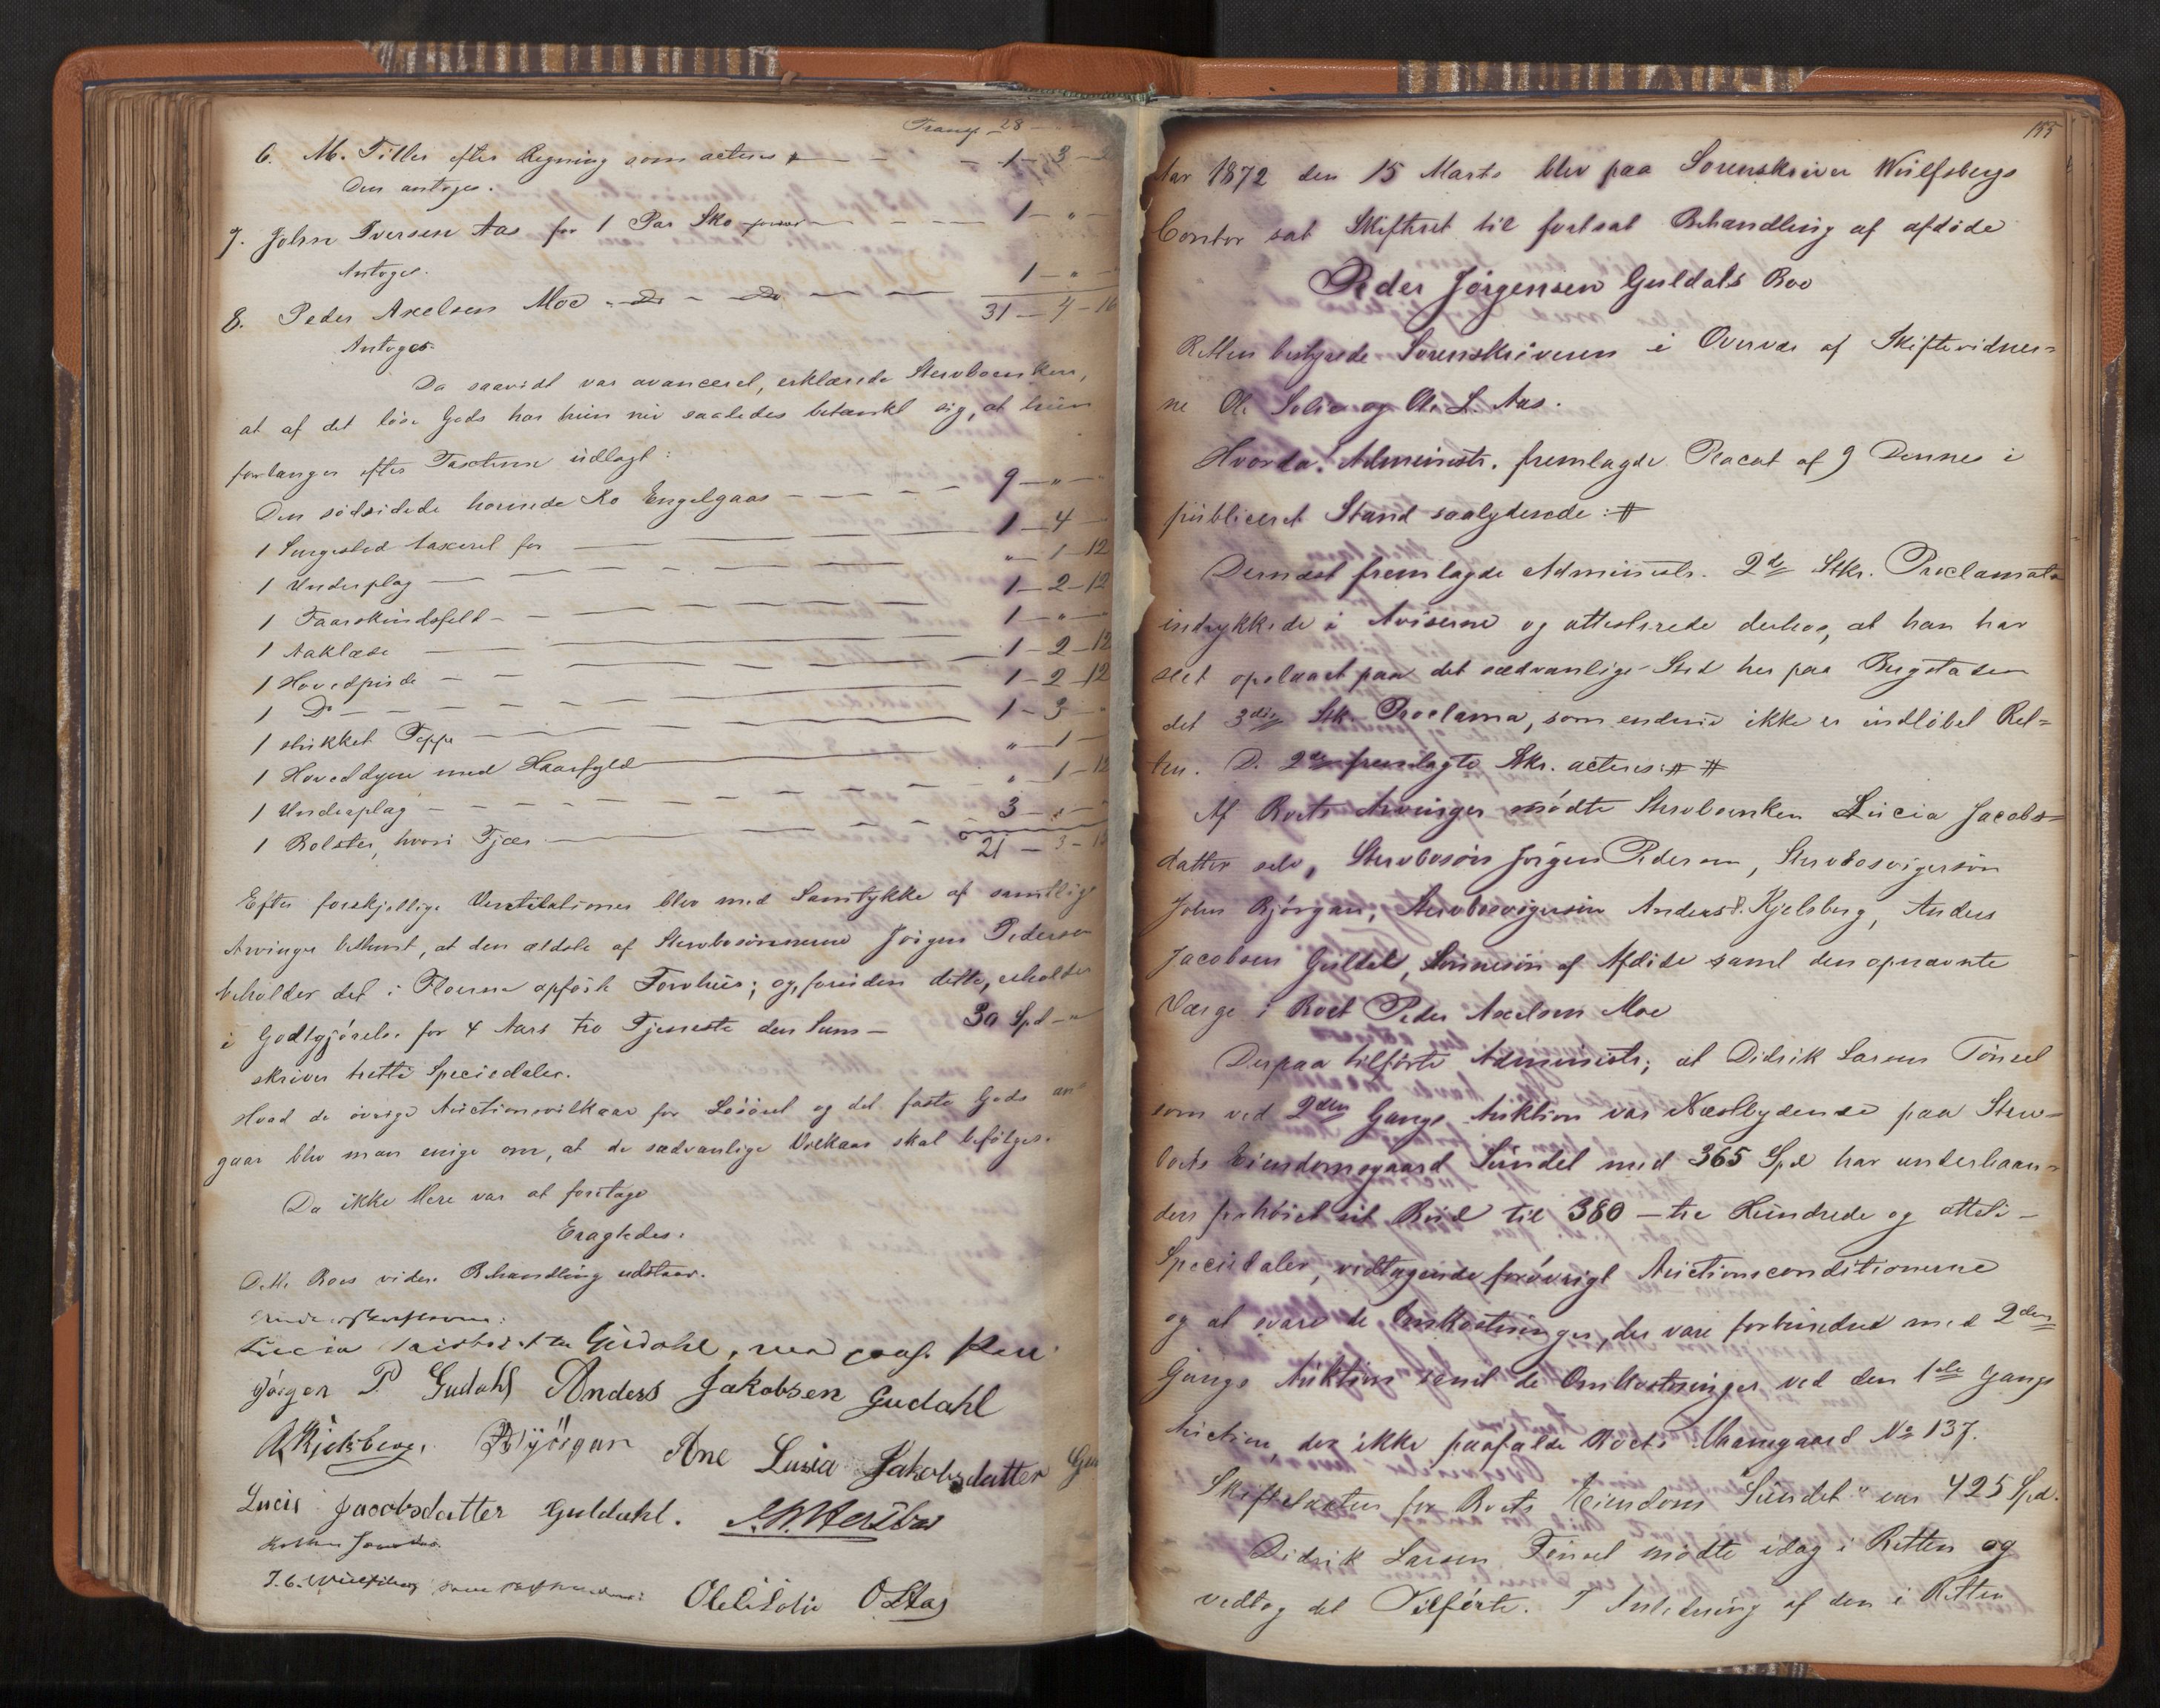 Transp. 28
6. M. Tiller efter Regning som acteres — 1 — 3 —
Den antoges.
7. John Iversen Aas for 1 Par Sko — 1 — " —
Antoges.
8. Peder Axelsen Moe — Do — Do — 1 — " —
31 — 4 — 16
Antoges.
Da saavidt var avanceret, erklærede Stervboenken,
at af det løse Gods har hun nu saaledes betænkt sig, at hun
forlanger efter Taxterne udlagt:
Den rødsidede hornede Ko Engelgaas — 9 — " —
1 Sengested taxeret for — 1 — 4 —
1 Underplag — " — 1 — 12
1 Faarskindsfeld — 1 — 2 — 12
1 Aaklæde — 1 — " — "
1 Hovedpude — 1 — 2 — 12
1 Do — 1 — 2 — 12
1 stikket Teppe — 1 — 3 — "
1 Hoveddyne med Haarfyld — " — 1 —
1 Underplag — " — 1 — 12
1 Bolster, hvori Fjær — 3 — " —
21 — 3 —
Efter forskjellige Ventilationer blev med Samtykke af samtlige
Arvinger bestemt, at den ældste af Stervbosønnerne Jørgen Pedersen
beholder det i Floerne opførte Fovhus; og, foruden dette, erholder
i Godtgjørelse for 4 Aars tro Tjeneste den Sum — 30 Spd — "
skriver tretti Speciedaler.
Hvad de øvrige Auctionsvilkaar for Løsøret og det faste Gods an=
gaar blev man enige om, at de sædvanlige Vilkaar skal befølges.
Da ikke Mere var at foretage
Eragtedes:
Dette Boes videre Behandling udstaar.
Lucia Gudahl, med paah. Pen
Jørgen P Gudahl Anders Jakobsen Gudahl
A Kjelsberg. Bjørgan Ane Lusia Jakobsdatter
Lucie Jacobsdatter Guldahl.
Retten
J. C. Wulfsberg Ole Solie O L Aas
155
Aar 1872 den 15 Marts blev paa Sorenskriver Wulfsbergs
Contor sat Skifteret til fortsat Behandling af afdøde
Peder Jørgensen Guldals Boe
Retten bestyrede Sorenskriveren i Overvær af Skiftevidner=
ne Ole Solie og Ole L. Aas.
Hvorda: Administr. fremlagde Placat af 9 Dennes i
publiceret Stand saalydende: #
Dernæst fremlagde Administr. 2de Stkr. Proclamata
indrykkede i Aviserne og attesterede derhos, at han har
seet opslaaet paa det sædvanlige Sted her paa Bergstaden
det 3die Stk. Proclama, som endnu ikke er indløbet Ret=
ten. D. 2de fremlagte Stkr. acteres: # #
Af Boets Arvinger mødte Stervboenken Lucia Jacobs=
datter selv, Stervbosøn Jørgen Pedersen, Stervbosvigersøn
John Bjørgan, Stervbosvigersøn Anders P. Kjelsberg, Anders
Jacobsen Guldal, Sønnesøn af Afdøde samt den opnævnte
Værge i Boet Peder Axelsen Moe
Derpaa tilførte Administr; at Didrik Larsen Tønsel
som ved 2den Gangs Auktion var Næstbydende paa Sterv=
boets Eiendomsgaard Sundet med 365 Spd har underhaan=
den forhøiet sit Bud til 380 — tre Hundrede og otteti —
Speciedaler, vedtagende forøvrigt Auctionsconditionerne
og at svare de Omkostninger, der vare forbundne med 2den
Gangs Auktion samt de Omkostninger ved den 1ste Gangs
Auction, der ikke paafaldt Boets Mæregaard No 137.
Skiftetaxten for Boets Eiendom "Sundet" var 425 Spd.
Didrik Larsen Tønsel mødte idag i Retten og
vedtog det Tilførte. I Anledning af den i Retten